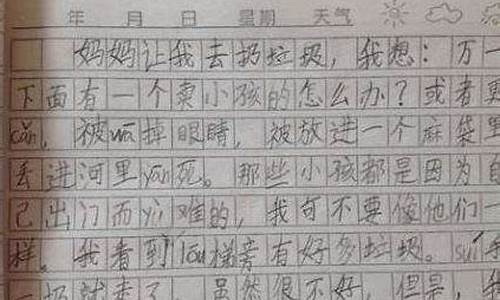 年 月 日 星期 天气
妈妈让我去扔垃圾，我想：万一
下面有一个卖小孩的怎么办？或者更
cǎn，被wā掉眼睛，被放进一个麻袋里
丢进河里yān死。那些小孩都是因为自
己出门而yù难的，我可不要像他们一
样。我看到lóu梯旁有好多垃圾。suí手
一扔就来了，虽然很不好，但是，我